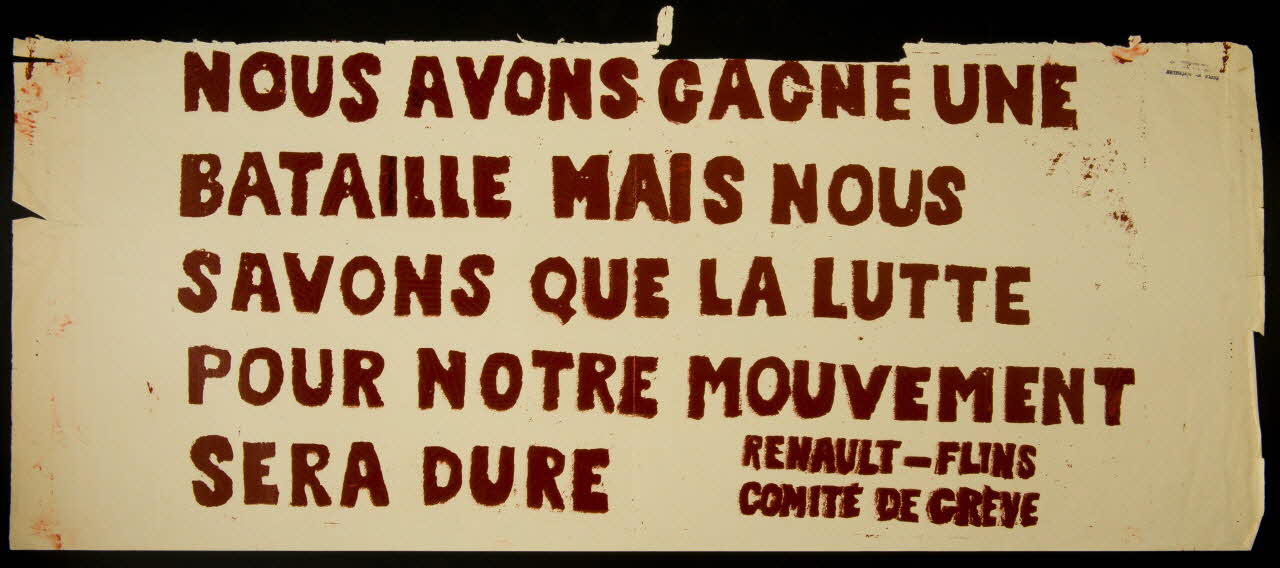 NOUS AVONS GAGNE UNE
BATAILLE MAIS NOUS
SAVONS QUE LA LUTTE
POUR NOTRE MOUVEMENT
SERA DURE
RENAULT-FLINS
COMITÉ DE GRÈVE